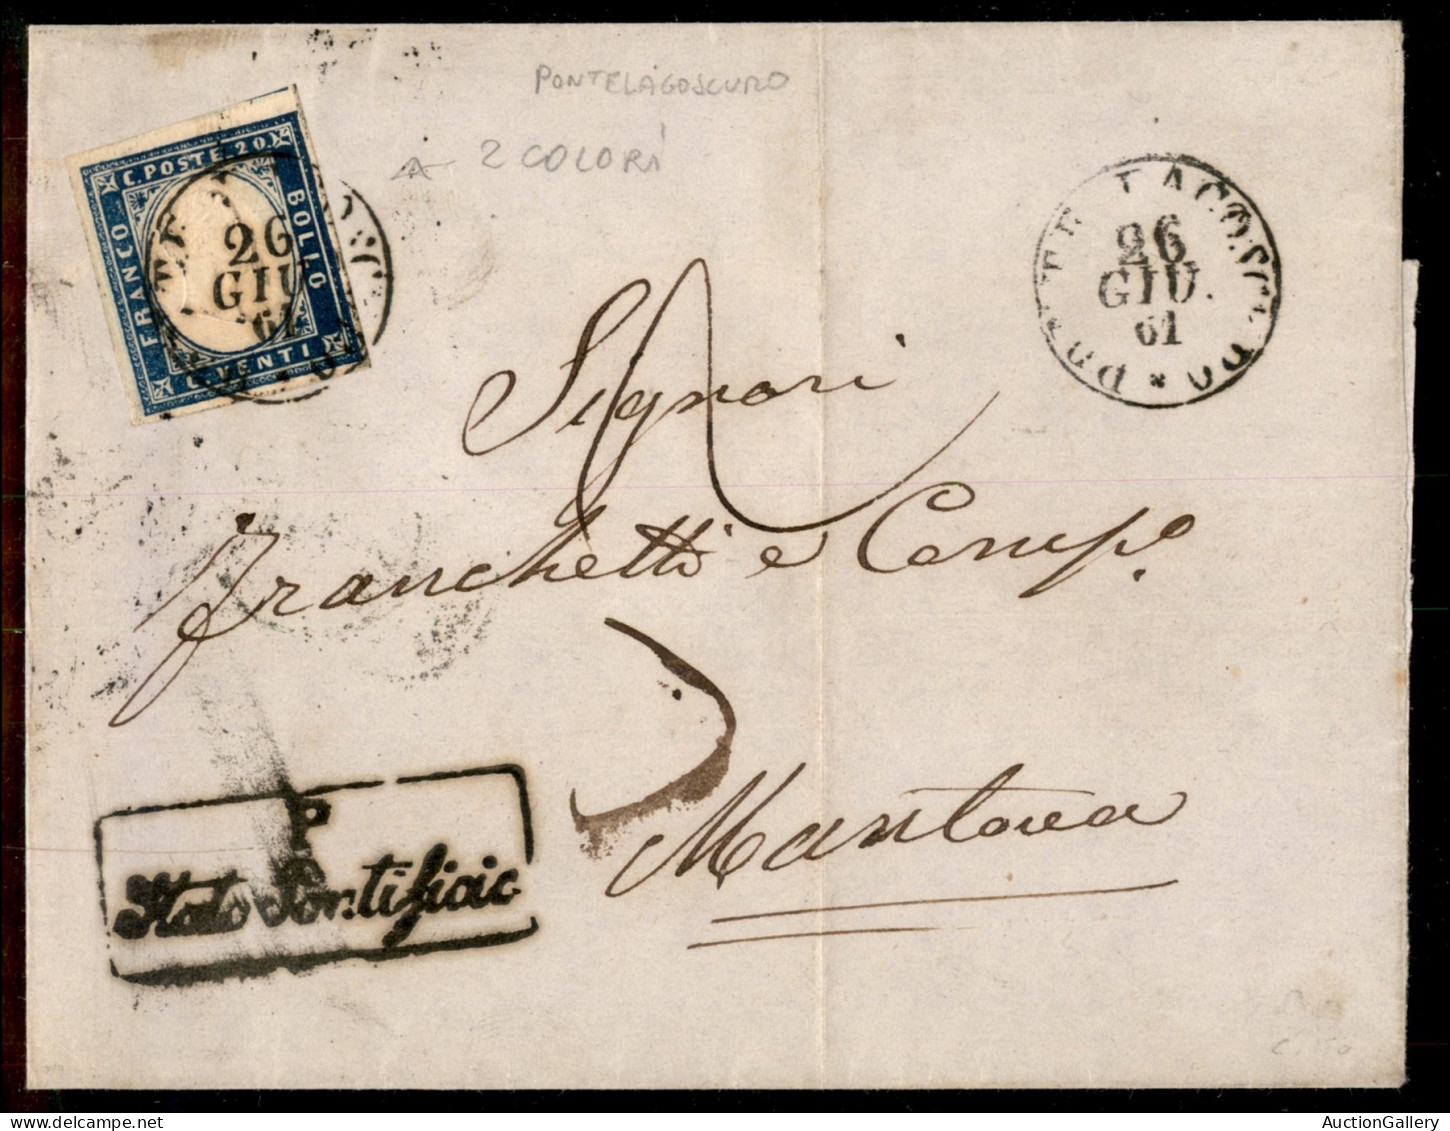 PONTELAGOSCURO
2 COLORI
C. POSTE 20
FRANCO
BOLLO
C. VENTI
26
GIU
61
26
GIU.
61
Signori
Franchetti e Comp.º
Mantova
P
Stato Pontificio
AuctionGallery